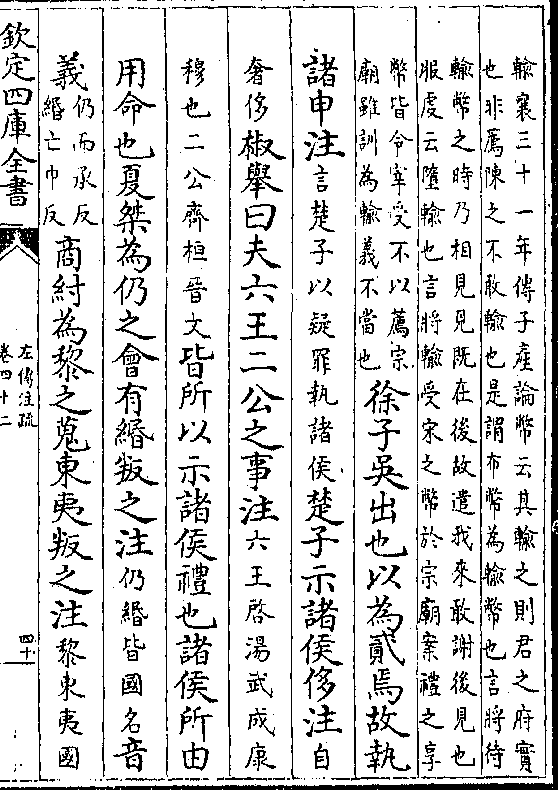 輸襄三十一年傳子產論幣云其輸之則君之府實
也非薦陳之不敢輸也是謂布幣為輸幣也言將待
輸幣之時乃相見見既在後故遣我來敢謝後見也
服虔云墮輸也言將輸受宋之幣於宗廟案禮之享
幣皆令宰受不以薦宗
廟雖訓為輸義不當也
徐子吳出也以為貳焉故執
諸申注言楚子以疑罪執諸侯楚子示諸侯侈注自
奢侈椒舉曰夫六王二公之事注六王啓湯武成康
穆也二公齊桓晉文皆所以示諸侯禮也諸侯所由
用命也夏桀為仍之會有緡叛之注仍緡皆國名音
義
仍而承反
緡亡巾反
商紂為黎之蒐東夷叛之注黎東夷國
欽定四庫全書
左傳注疏
卷四十二
四十